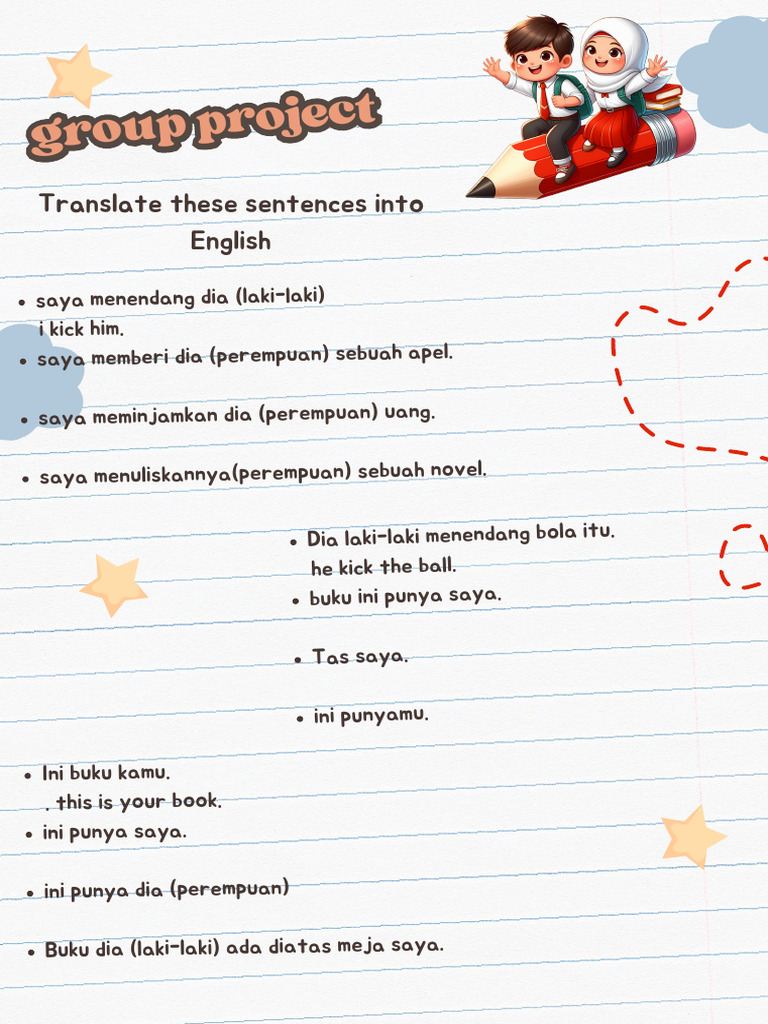 group project
Translate these sentences into
English
• saya menendang dia (laki-laki)
i kick him.
• saya memberi dia (perempuan) sebuah apel.
• saya meminjamkan dia (perempuan) uang.
• saya menuliskannya(perempuan) sebuah novel.
• Dia laki-laki menendang bola itu.
he kick the ball.
• buku ini punya saya.
• Tas saya.
• ini punyamu.
• Ini buku kamu.
. this is your book.
• ini punya saya.
• ini punya dia (perempuan)
• Buku dia (laki-laki) ada diatas meja saya.